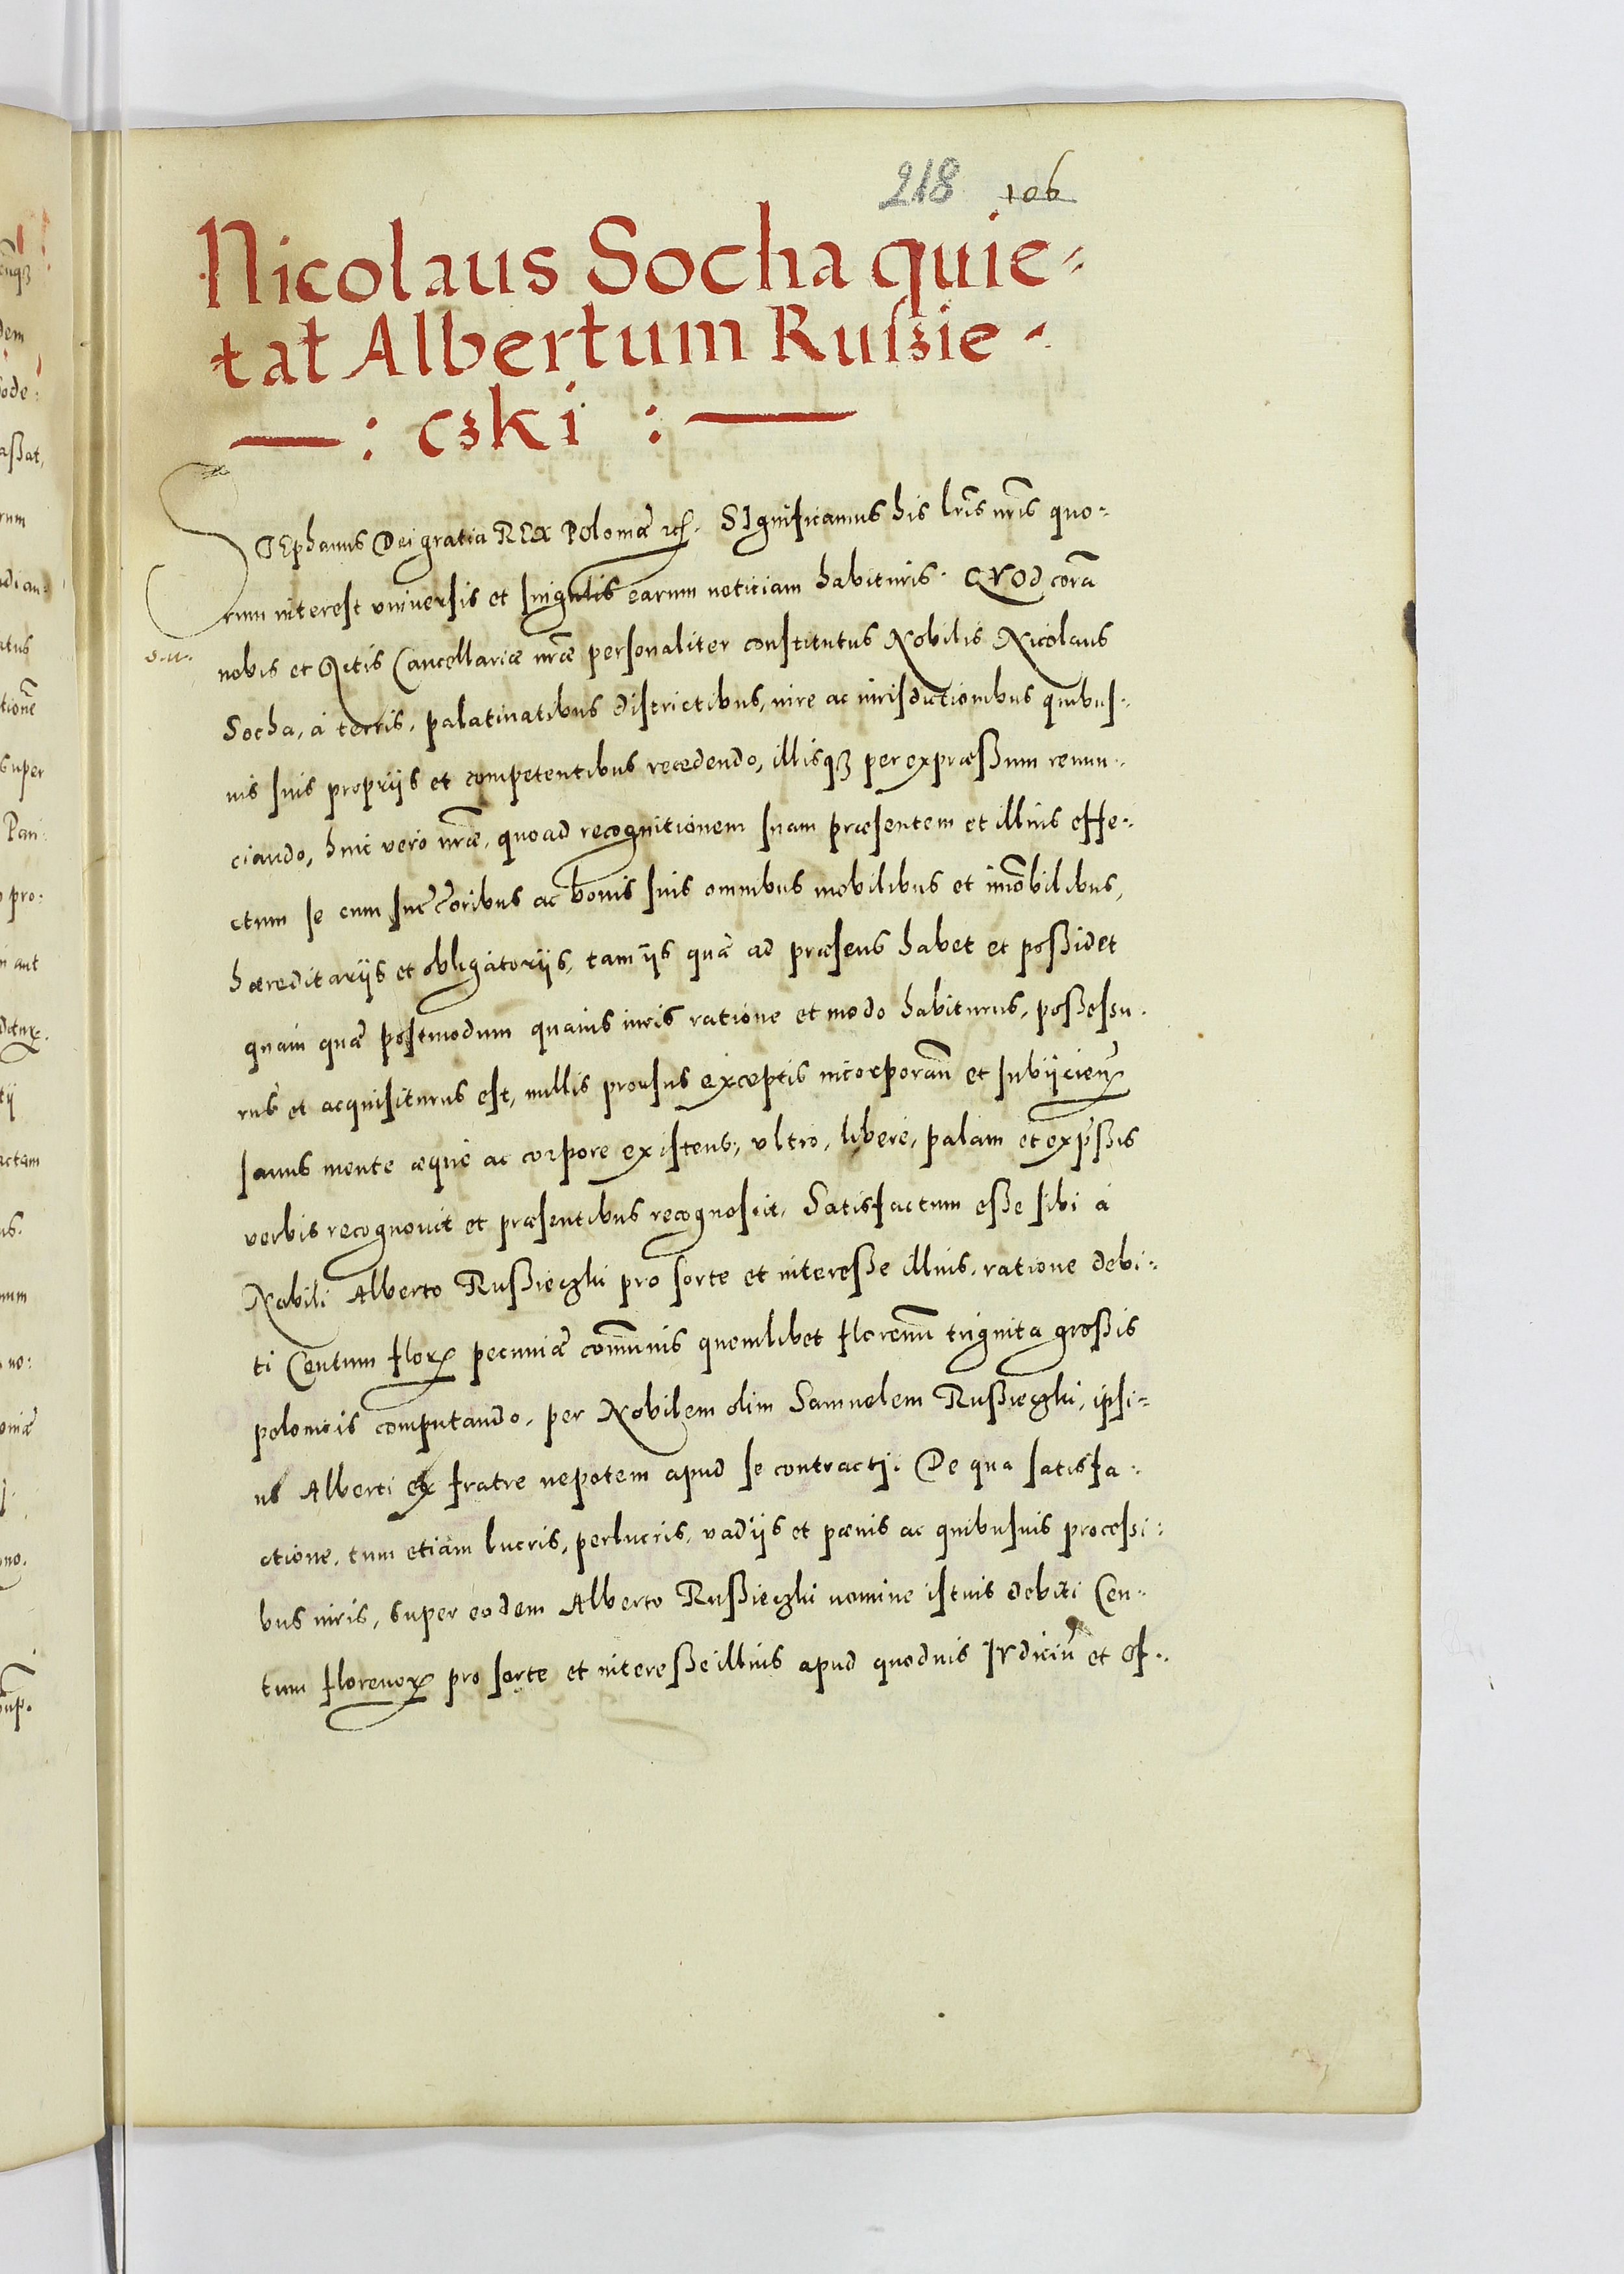 218 106
Nicolaus Socha quie-
tat Albertum Russie-
: cski :
STEphanus Dei gratia REX Poloniæ etc. SIgnificamus his lr̃is nr̃is quo-
rum interest vniuersis et singulis earum noticiam habituris. QVOd corã
nobis et Actis Cancellariæ nr̃æ personaliter constitutus Nobilis Nicolaus
Socha, à terris, palatinatibus districtibus, iure ac iurisdictionibus quibus-
uis suis proprijs et competentibus recedendo, illisqꝫ per expræssum renun-
ciando, huic vero nr̃æ, quoad recognitionem suam præsentem et illius effe-
ctum se cum succ̃oribus ac bonis suis omnibus mobilibus et im̃obilibus,
hæreditarijs et obligatorijs, tam ijs quæ ad præsens habet et possidet
quam quæ postmodum quauis iuris ratione et modo habiturus, possessu-
rus et acquisiturus est, nullis prorsus exceptis incorporañ et subijcieñ
sanus mente æque ac corpore existens, vltro, libere, palam et exp̃ssis
verbis recognouit et præsentibus recognoscit, Satisfactum esse sibi à
Nobili Alberto Russieczki pro sorte et interesse illius, ratione debi-
ti Centum florꝝ pecuniæ com̃unis quemlibet florenũ triginta grossis
polonicis computando, per Nobilem olim Samuelem Russieczki, ipsi-
us Alberti ex fratre nepotem apud se contracti. De qua satisfa-
ctione, tum etiam lucris, perlucris, vadijs et pænis ac quibusuis processi-
bus iuris, super eodem Alberto Russieczki nomine istius debiti Cen-
tum florenorꝝ pro sorte et interesse illius apud quoduis IVdiciũ et Of-